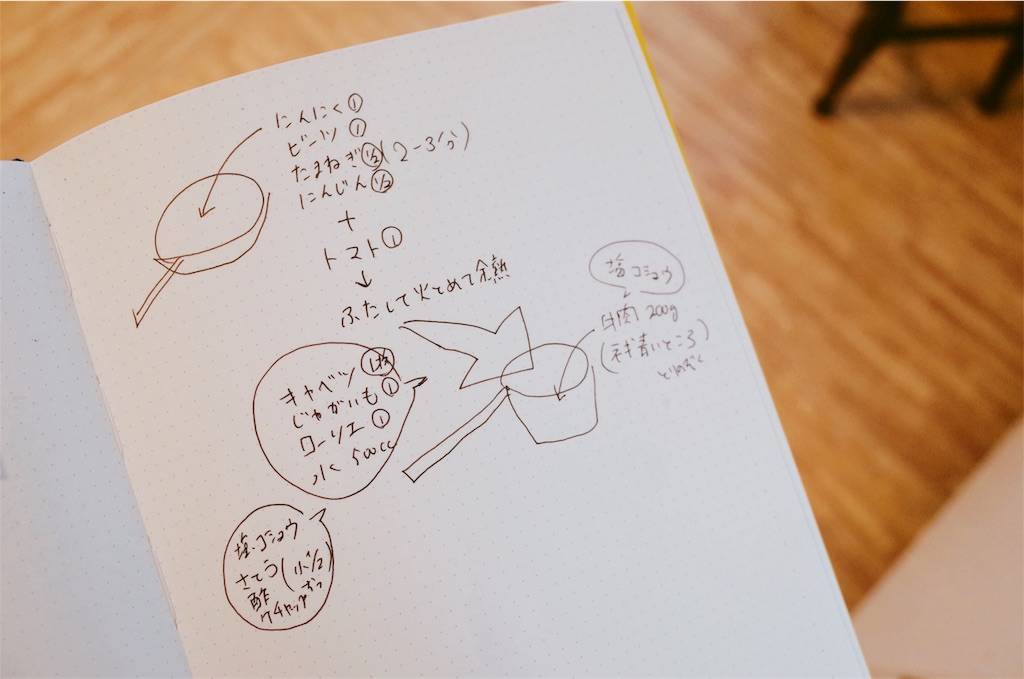 にんにく①
ビーツ①
たまねぎ(1/2)(2-3分)
にんじん(1/2)
+
トマト①
↓
ふたして火とめて余熱
塩コショウ
牛肉 200g
(ネギ青いところ)
キャベツ(1枚)
じゃがいも①
ローリエ①
水 500cc
塩・コショウ
さとう(小1/2)
酢
ケチャップ